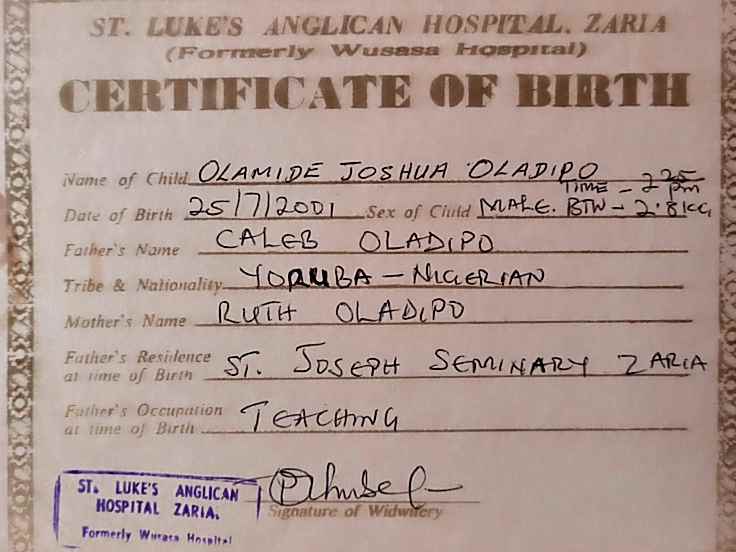 ST. LUKE'S ANGLICAN HOSPITAL, ZARIA
(Formerly Wusasa Hospital)
CERTIFICATE OF BIRTH
Name of Child OLAMIDE JOSHUA OLADIPO
TIME - 2 25 pm
Date of Birth 25/7/2001 Sex of Child MALE. BTW - 2.8KG
Father's Name CALEB OLADIPO
Tribe & Nationality YORUBA - NIGERIAN
Mother's Name RUTH OLADIPO
Father's Residence
at time of Birth ST. JOSEPH SEMINARY ZARIA
Father's Occupation
at time of Birth TEACHING
ST. LUKE'S ANGLICAN
HOSPITAL ZARIA.
Formerly Wusasa Hospital
Signature of Widwifery